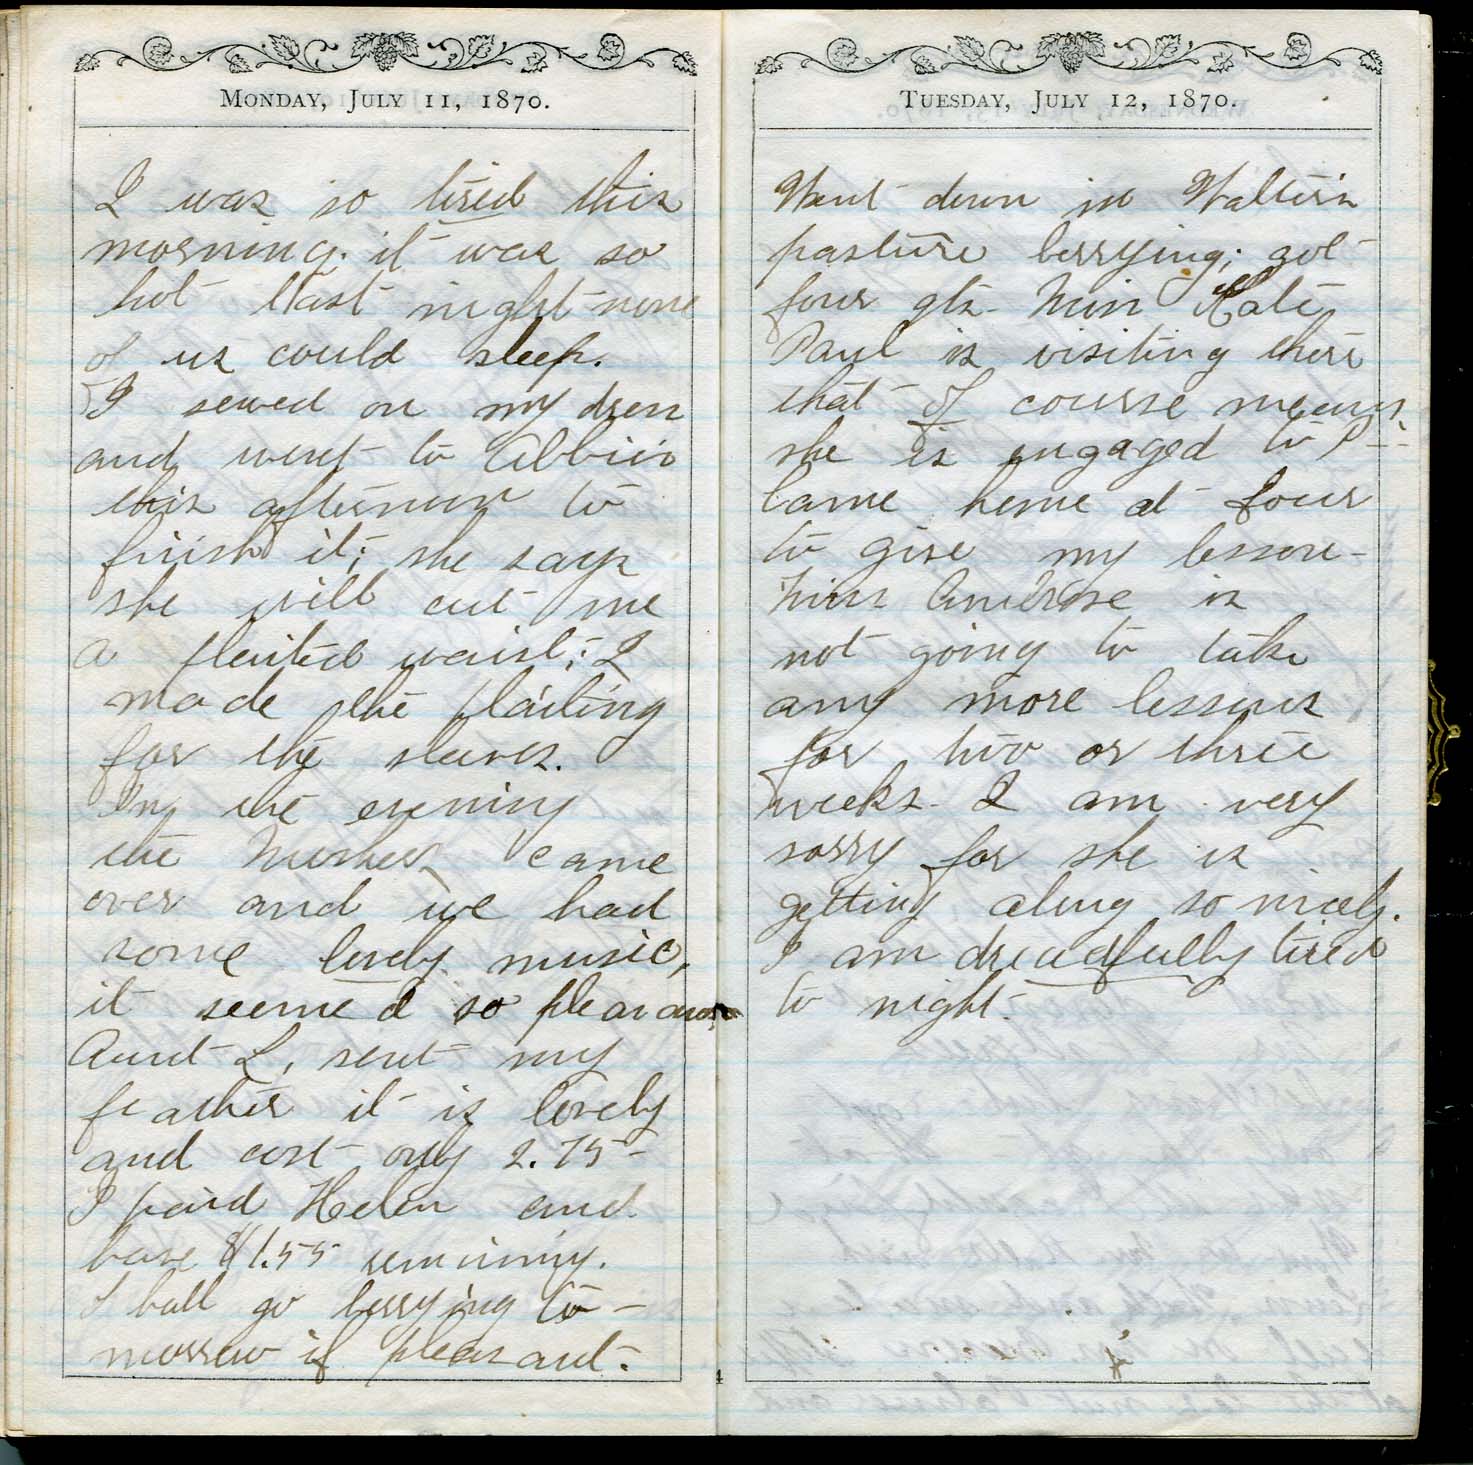 MONDAY, JULY 11, 1870.
I was so tired this
morning. it was so
hot last night none
of us could sleep.
I sewed on my dress
and went to Abbie's
this afternoon to
finish it; she says
she will cut me
a plaited waist; I
made the plaiting
for the sleeves.
In the evening
the came
over and we had
some lovely music,
it seemed so pleasant
Aunt L. sent my
feather it is lovely
and cost only 2.75
I paid Helen and
have $1.55 remining.
I hall go berrying to-
morrow if pleasant.
TUESDAY, JULY 12, 1870.
Went down in Walter's
pasture berrying; got
four qts. Miss Kate
Paul is visiting there
that of course means
she is engaged to P--
Came home at four
to give my lesson-
Miss Ambrose is
not going to take
any more lessons
for two or three
weeks. I am very
sorry for she is
getting along so nicely.
I am dreadfully tired
to night.